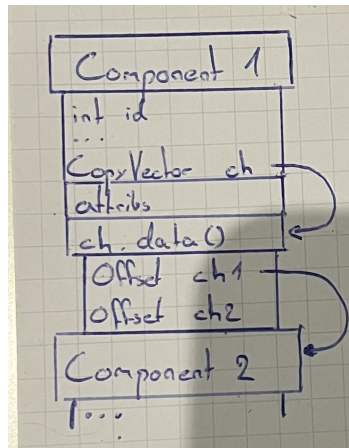 Component 1
int id
...
CopyVector ch
attribs
ch.data()
Offset ch1
Offset ch2
Component 2
...